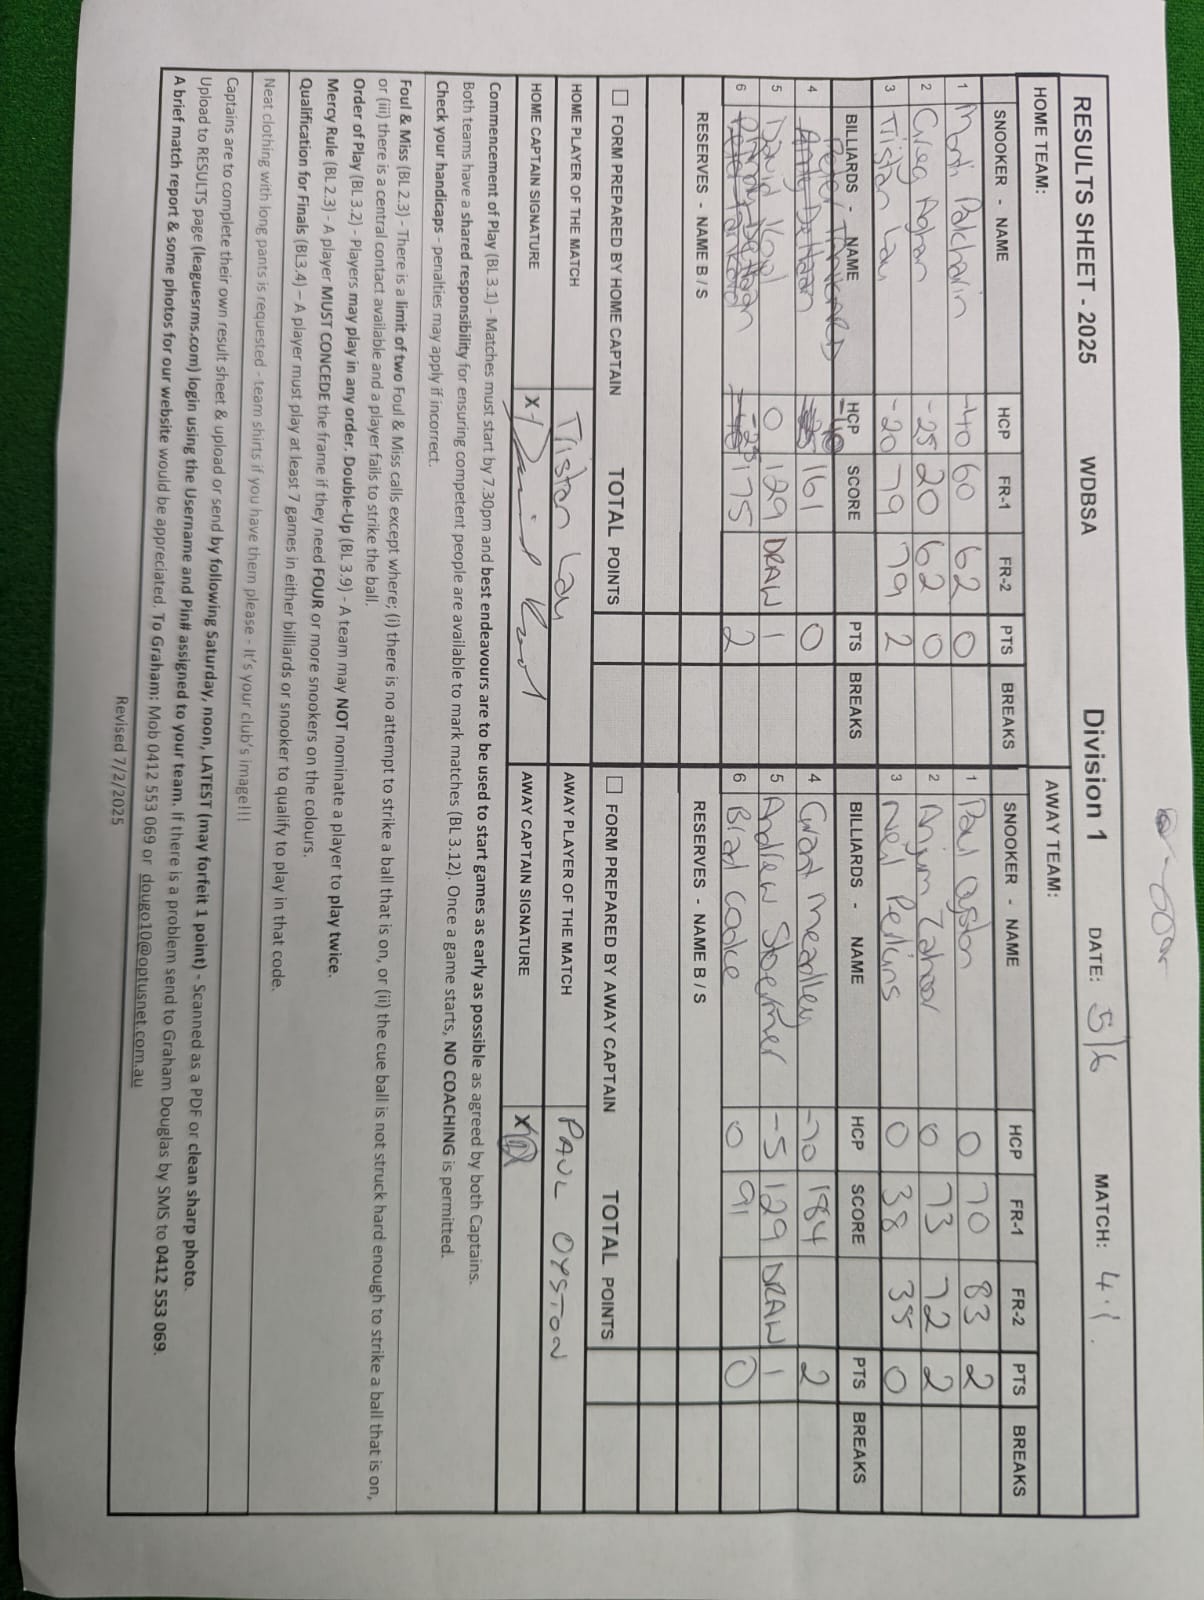 RESULTS SHEET - 2025 WDBSA Division 1 DATE: 5/6 MATCH: 4.1.
HOME TEAM: AWAY TEAM:
SNOOKER - NAME HCP FR-1 FR-2 PTS BREAKS SNOOKER - NAME HCP FR-1 FR-2 PTS BREAKS
1 -40 60 62 0 1 Paul Oyston 0 70 83 2
2 Greg -25 20 62 0 2 Anjum Zahoor 0 73 72 2
3 Tristan Lau -20 79 79 2 3 Neil Perkins 0 38 0
BILLIARDS - NAME HCP SCORE PTS BREAKS BILLIARDS - NAME HCP SCORE PTS BREAKS
Peter -40
4 161 0 4 Grant Meadley -70 184 2
5 David 0 129 DRAW 1 5 Andrew Stoermer -5 129 DRAW 1
6 -25 175 2 6 Brad Cooke 0 91 0
RESERVES - NAME B / S RESERVES - NAME B / S
FORM PREPARED BY HOME CAPTAIN TOTAL POINTS FORM PREPARED BY AWAY CAPTAIN TOTAL POINTS
HOME PLAYER OF THE MATCH Tristan Lau AWAY PLAYER OF THE MATCH PAUL OYSTON
HOME CAPTAIN SIGNATURE X AWAY CAPTAIN SIGNATURE X
Commencement of Play (BL 3.1) - Matches must start by 7.30pm and best endeavours are to be used to start games as early as possible as agreed by both Captains.
Both teams have a shared responsibility for ensuring competent people are available to mark matches (BL 3.12). Once a game starts, NO COACHING is permitted.
Check your handicaps - penalties may apply if incorrect.
Foul & Miss (BL 2.3) - There is a limit of two Foul & Miss calls except where; (i) there is no attempt to strike a ball that is on, or (ii) the cue ball is not struck hard enough to strike a ball that is on,
or (iii) there is a central contact available and a player fails to strike the ball.
Order of Play (BL 3.2) - Players may play in any order. Double-Up (BL 3.9) - A team may NOT nominate a player to play twice.
Mercy Rule (BL 2.3) - A player MUST CONCEDE the frame if they need FOUR or more snookers on the colours.
Qualification for Finals (BL3.4) – A player must play at least 7 games in either billiards or snooker to qualify to play in that code.
Neat clothing with long pants is requested - team shirts if you have them please - It's your club's image!!!
Captains are to complete their own result sheet & upload or send by following Saturday, noon, LATEST (may forfeit 1 point) - Scanned as a PDF or clean sharp photo.
Upload to RESULTS page (leaguesrms.com) login using the Username and Pin# assigned to your team. If there is a problem send to Graham Douglas by SMS to 0412 553 069.
A brief match report & some photos for our website would be appreciated. To Graham: Mob 0412 553 069 or dougo10@optusnet.com.au
Revised 7/2/2025